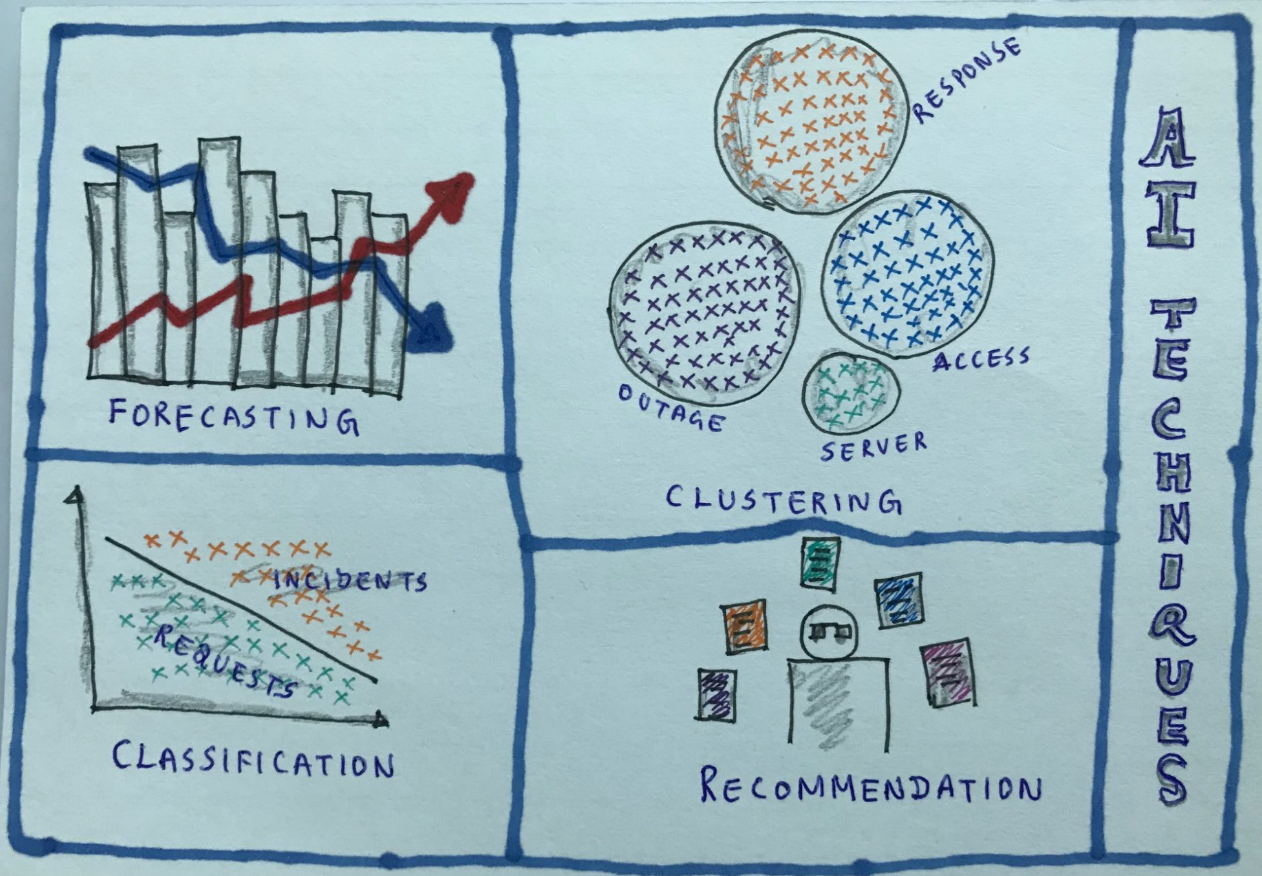 FORECASTING
RESPONSE
OUTAGE
ACCESS
SERVER
CLUSTERING
INCIDENTS
REQUESTS
CLASSIFICATION
RECOMMENDATION
AI TECHNIQUES